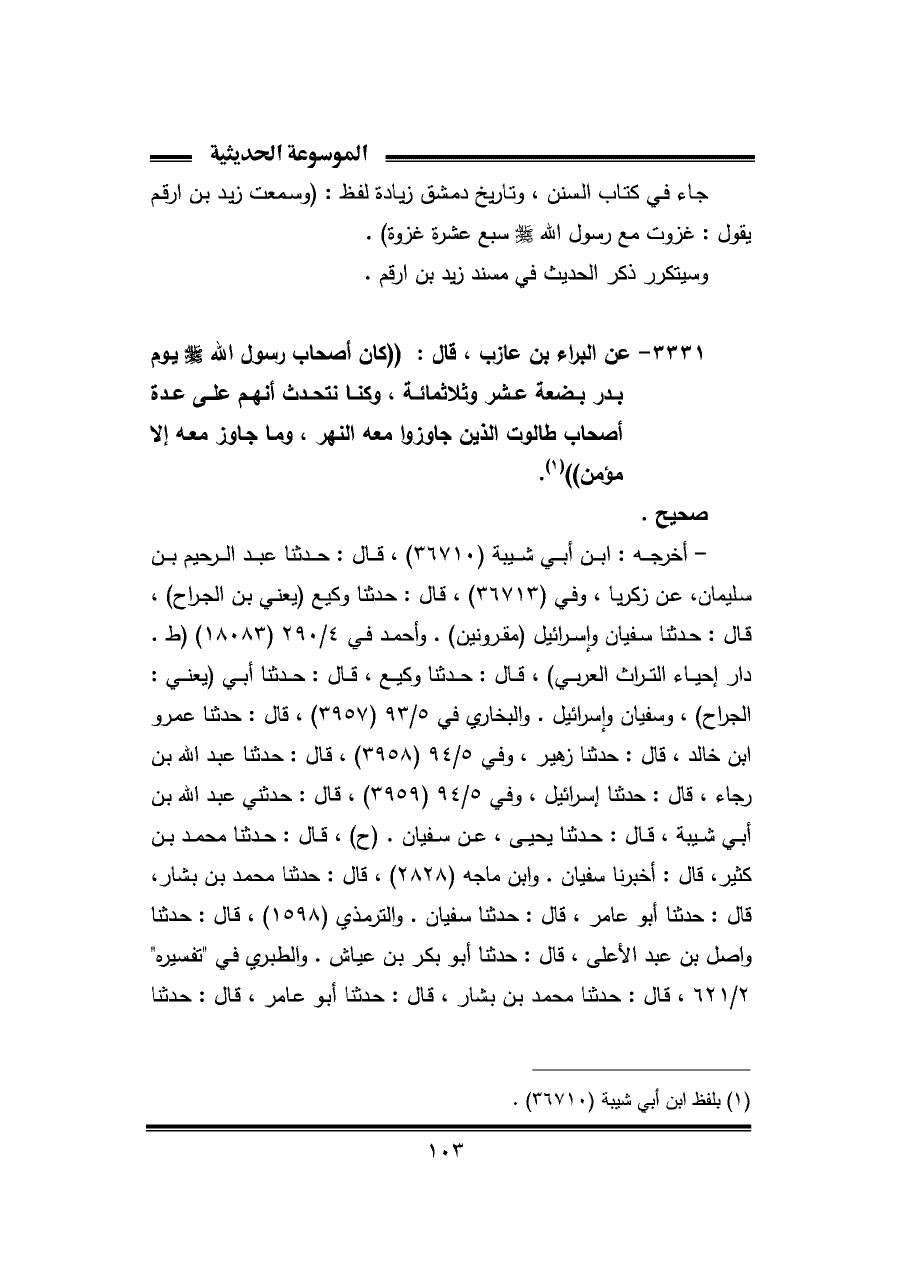 الموسوعة الحديثية
جاء في كتاب السنن ، وتاريخ دمشق زيادة لفظ : (وسمعت زيد بن ارقم
يقول : غزوت مع رسول الله ﷺ سبع عشرة غزوة) .
وسيتكرر ذكر الحديث في مسند زيد بن ارقم .
٣٣٣١- عن البراء بن عازب ، قال : ((كان أصحاب رسول الله ﷺ يوم
بدر بضعة عشر وثلاثمائة ، وكنا نتحدث أنهم على عدة
أصحاب طالوت الذين جاوزوا معه النهر ، وما جاوز معه إلا
مؤمن))(١).
صحيح .
- أخرجه : ابن أبي شيبة (٣٦٧١٠) ، قال : حدثنا عبد الرحيم بن
سليمان، عن زكريا ، وفي (٣٦٧١٣) ، قال : حدثنا وكيع (يعني بن الجراح) ،
قال : حدثنا سفيان وإسرائيل (مقرونين) . وأحمد في ٢٩٠/٤ (١٨٠٨٣) (ط .
دار إحياء التراث العربي) ، قال : حدثنا وكيع ، قال : حدثنا أبي (يعني :
الجراح) ، وسفيان وإسرائيل . والبخاري في ٩٣/٥ (٣٩٥٧) ، قال : حدثنا عمرو
ابن خالد ، قال : حدثنا زهير ، وفي ٩٤/٥ (٣٩٥٨) ، قال : حدثنا عبد الله بن
رجاء ، قال : حدثنا إسرائيل ، وفي ٩٤/٥ (٣٩٥٩) ، قال : حدثني عبد الله بن
أبي شيبة ، قال : حدثنا يحيى ، عن سفيان . (ح) ، قال : حدثنا محمد بن
كثير، قال : أخبرنا سفيان . وابن ماجه (٢٨٢٨) ، قال : حدثنا محمد بن بشار،
قال : حدثنا أبو عامر ، قال : حدثنا سفيان . والترمذي (١٥٩٨) ، قال : حدثنا
واصل بن عبد الأعلى ، قال : حدثنا أبو بكر بن عياش . والطبري في "تفسيره"
٦٢١/٢ ، قال : حدثنا محمد بن بشار ، قال : حدثنا أبو عامر ، قال : حدثنا
(١) بلفظ ابن أبي شيبة (٣٦٧١٠) .
١٠٣